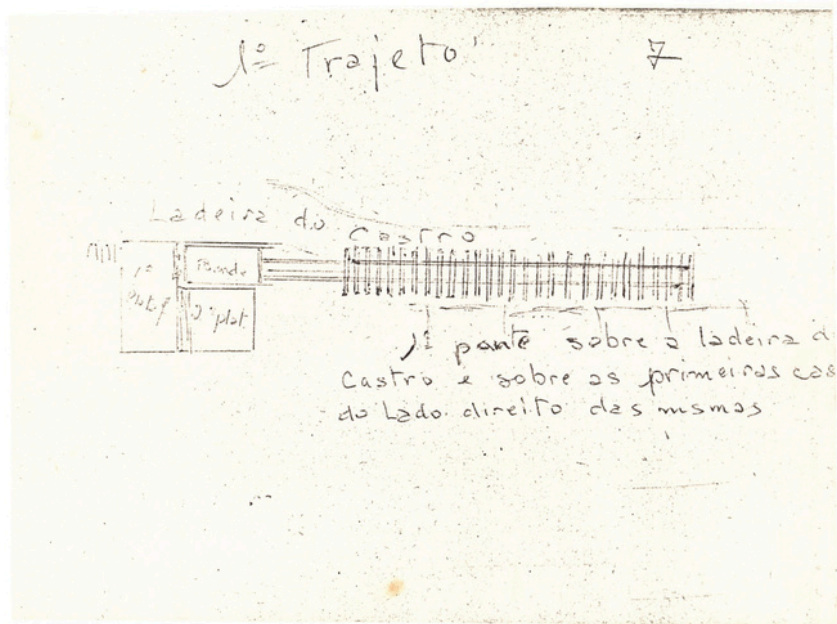 1º Trajeto 7
Ladeira do Castro
1ª
Platf
Bonde
2ª plat.
1ª ponte sobre a ladeira d
Castro e sobre as primeiras cas
do Lado direito das mismas